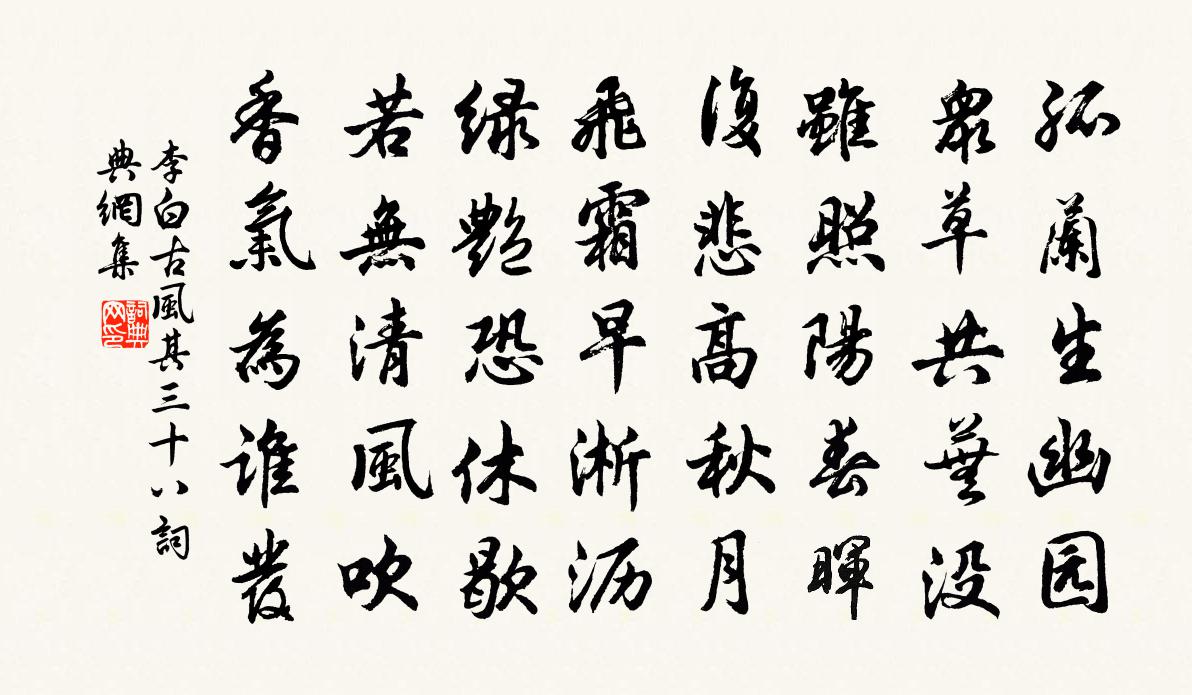 孤蘭生幽园
眾草共蕪没
雖照陽春暉
復悲高秋月
飛霜早淅沥
绿艷恐休歇
若無清風吹
香氣為誰發
李白古風其三十八詞
典網集
詞典網印